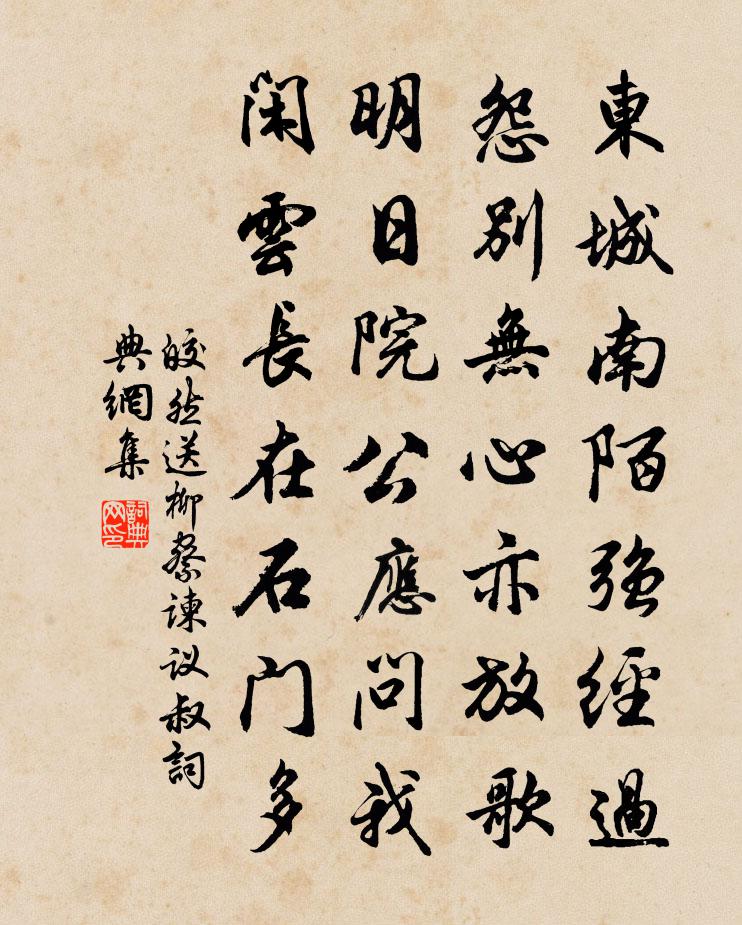 東城南陌強經過
怨別無心亦放歌
明日院公應問我
閑雲長在石門多
皎然送柳察諫议叔詞
典網集
詞典
网印